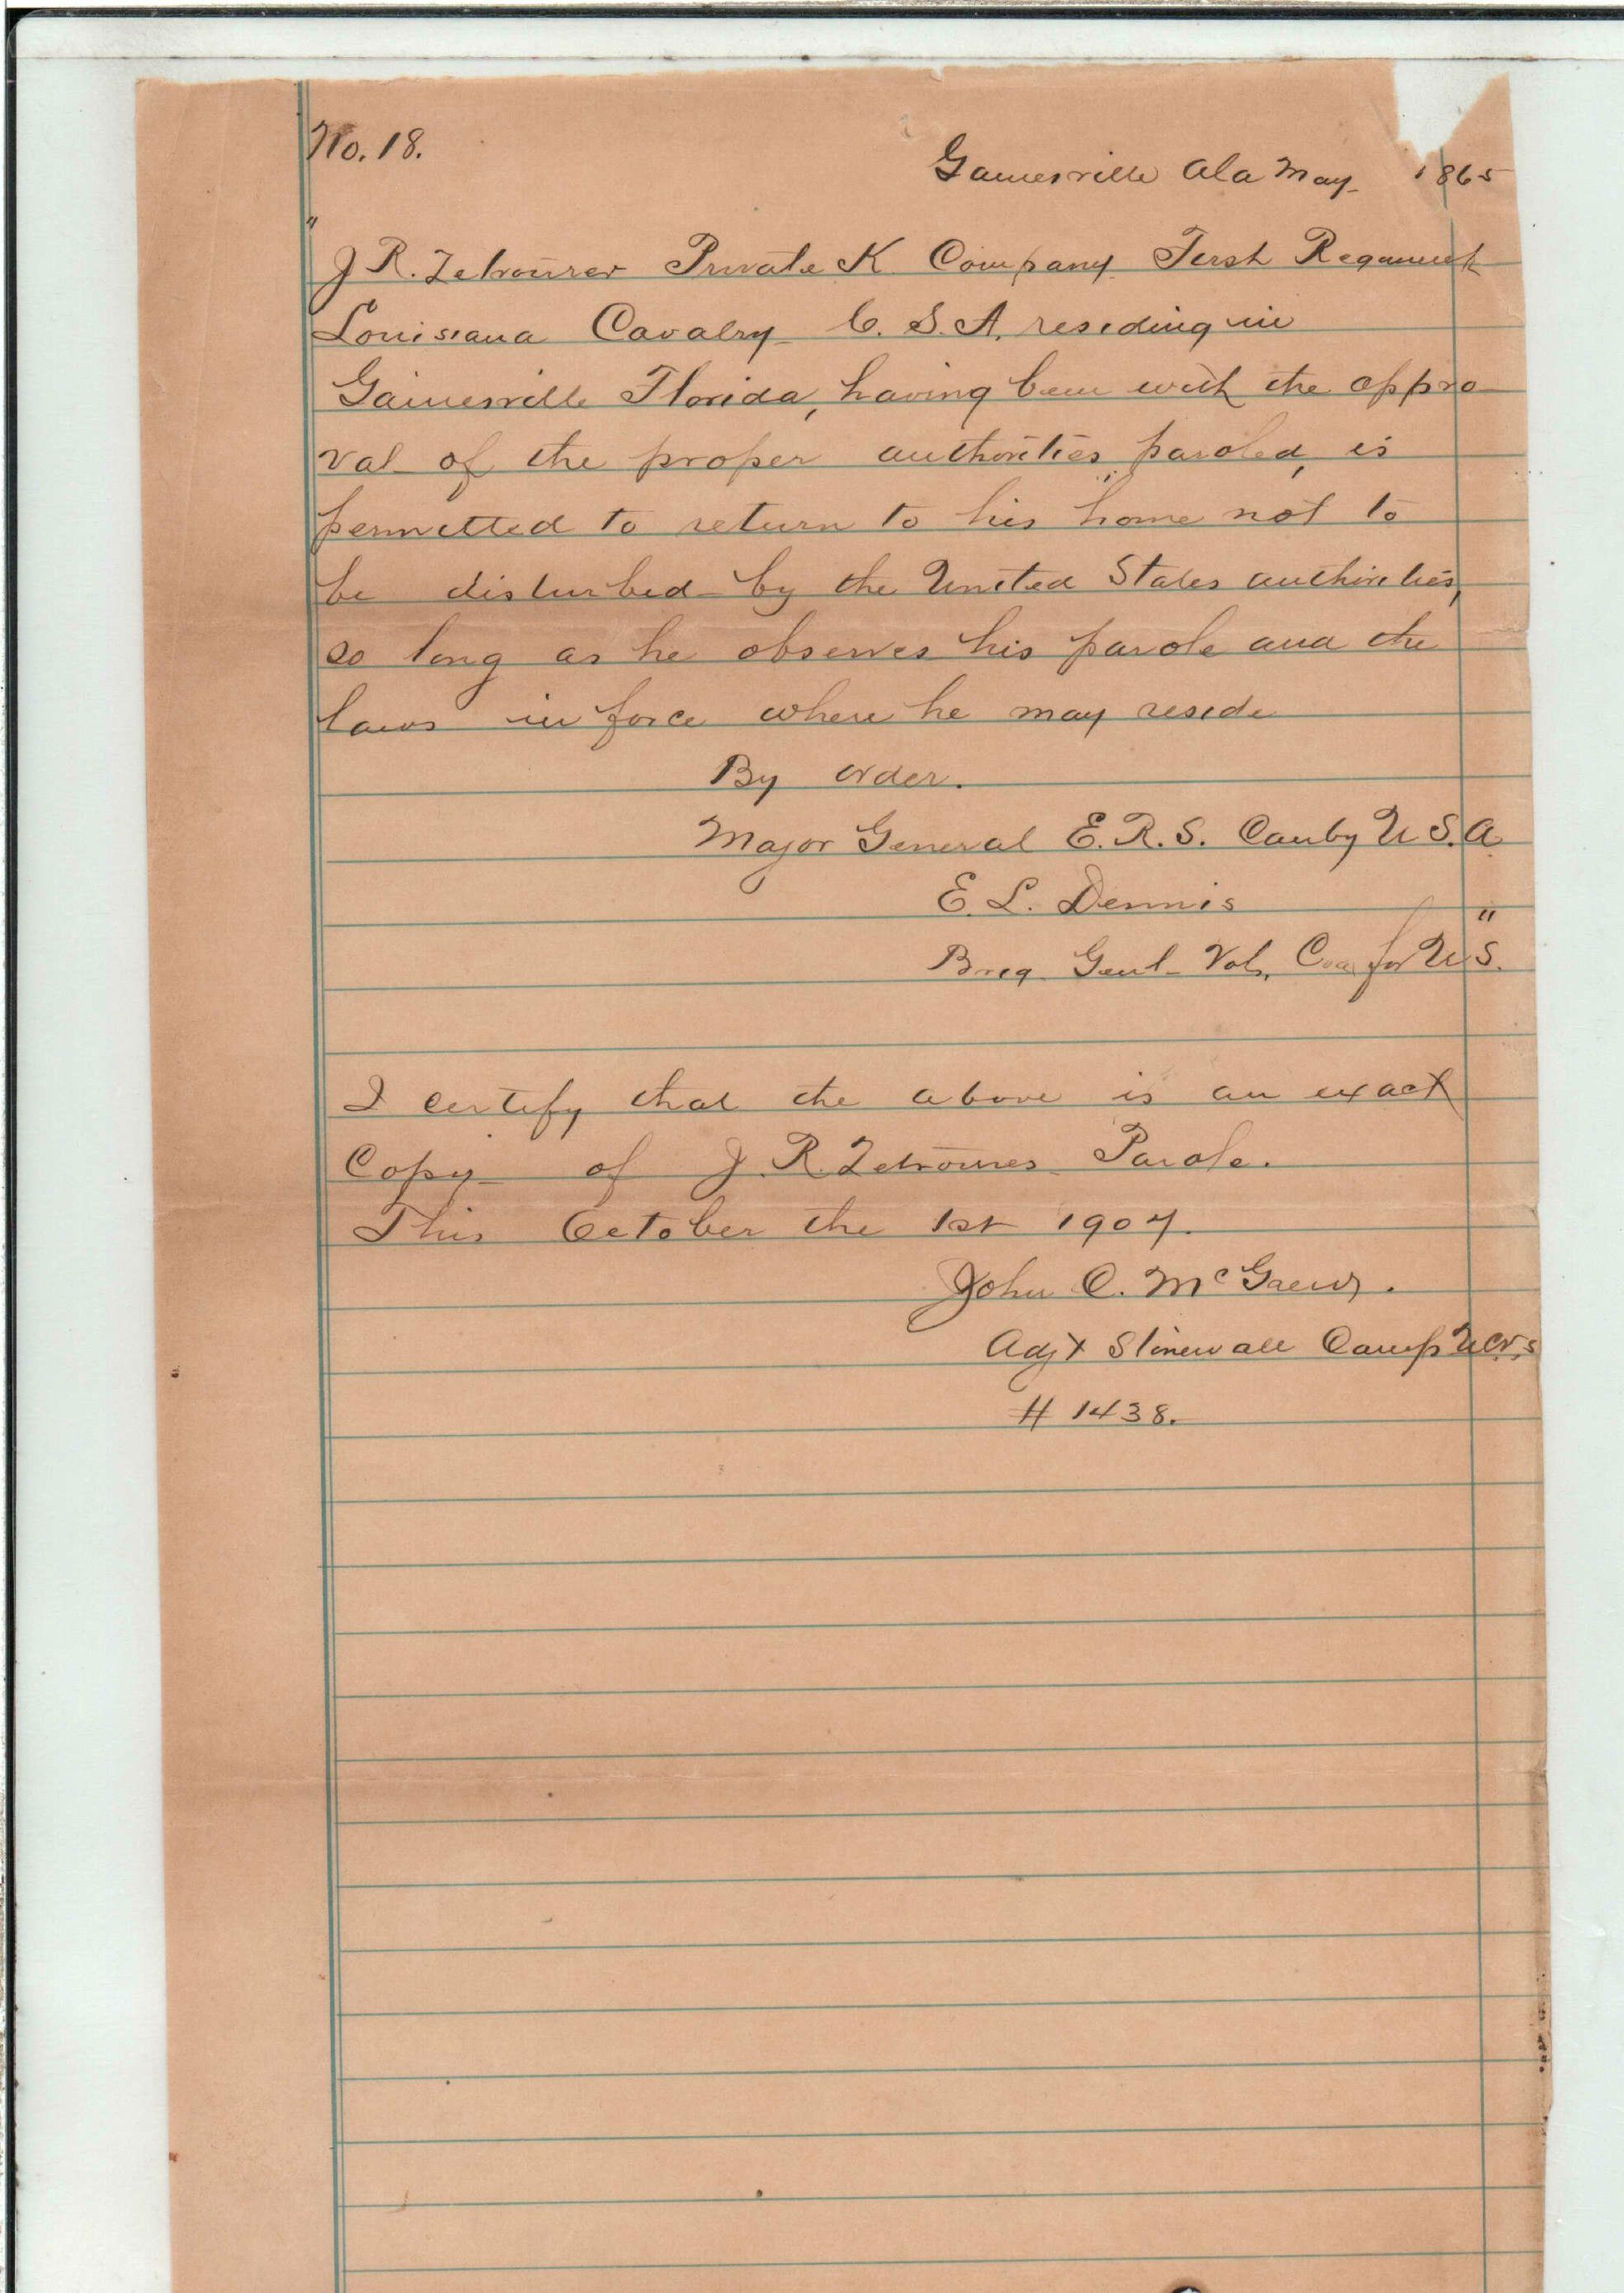 No. 18.
Gainesville Ala May 1865
"
J R. Zetrouer Private K Company First Regiment
Louisiana Cavalry C. S. A. residing in
Gainesville Florida, having been with the appro
val of the proper authorities, paroled, is
permitted to return to his home not to
be disturbed by the United States authorities,
so long as he observes his parole and the
laws in force where he may reside
By order.
Major General E. R. S. Canby U S. A
E. L. Dennis "
Brig. Genl Vols, Com for U S.
I certify that the above is an exact
Copy of J. R. Zetroures Parole.
This October the 1st 1907.
John C. McGrew.
Adjt Stonewall Camp U C V,s
# 1438.